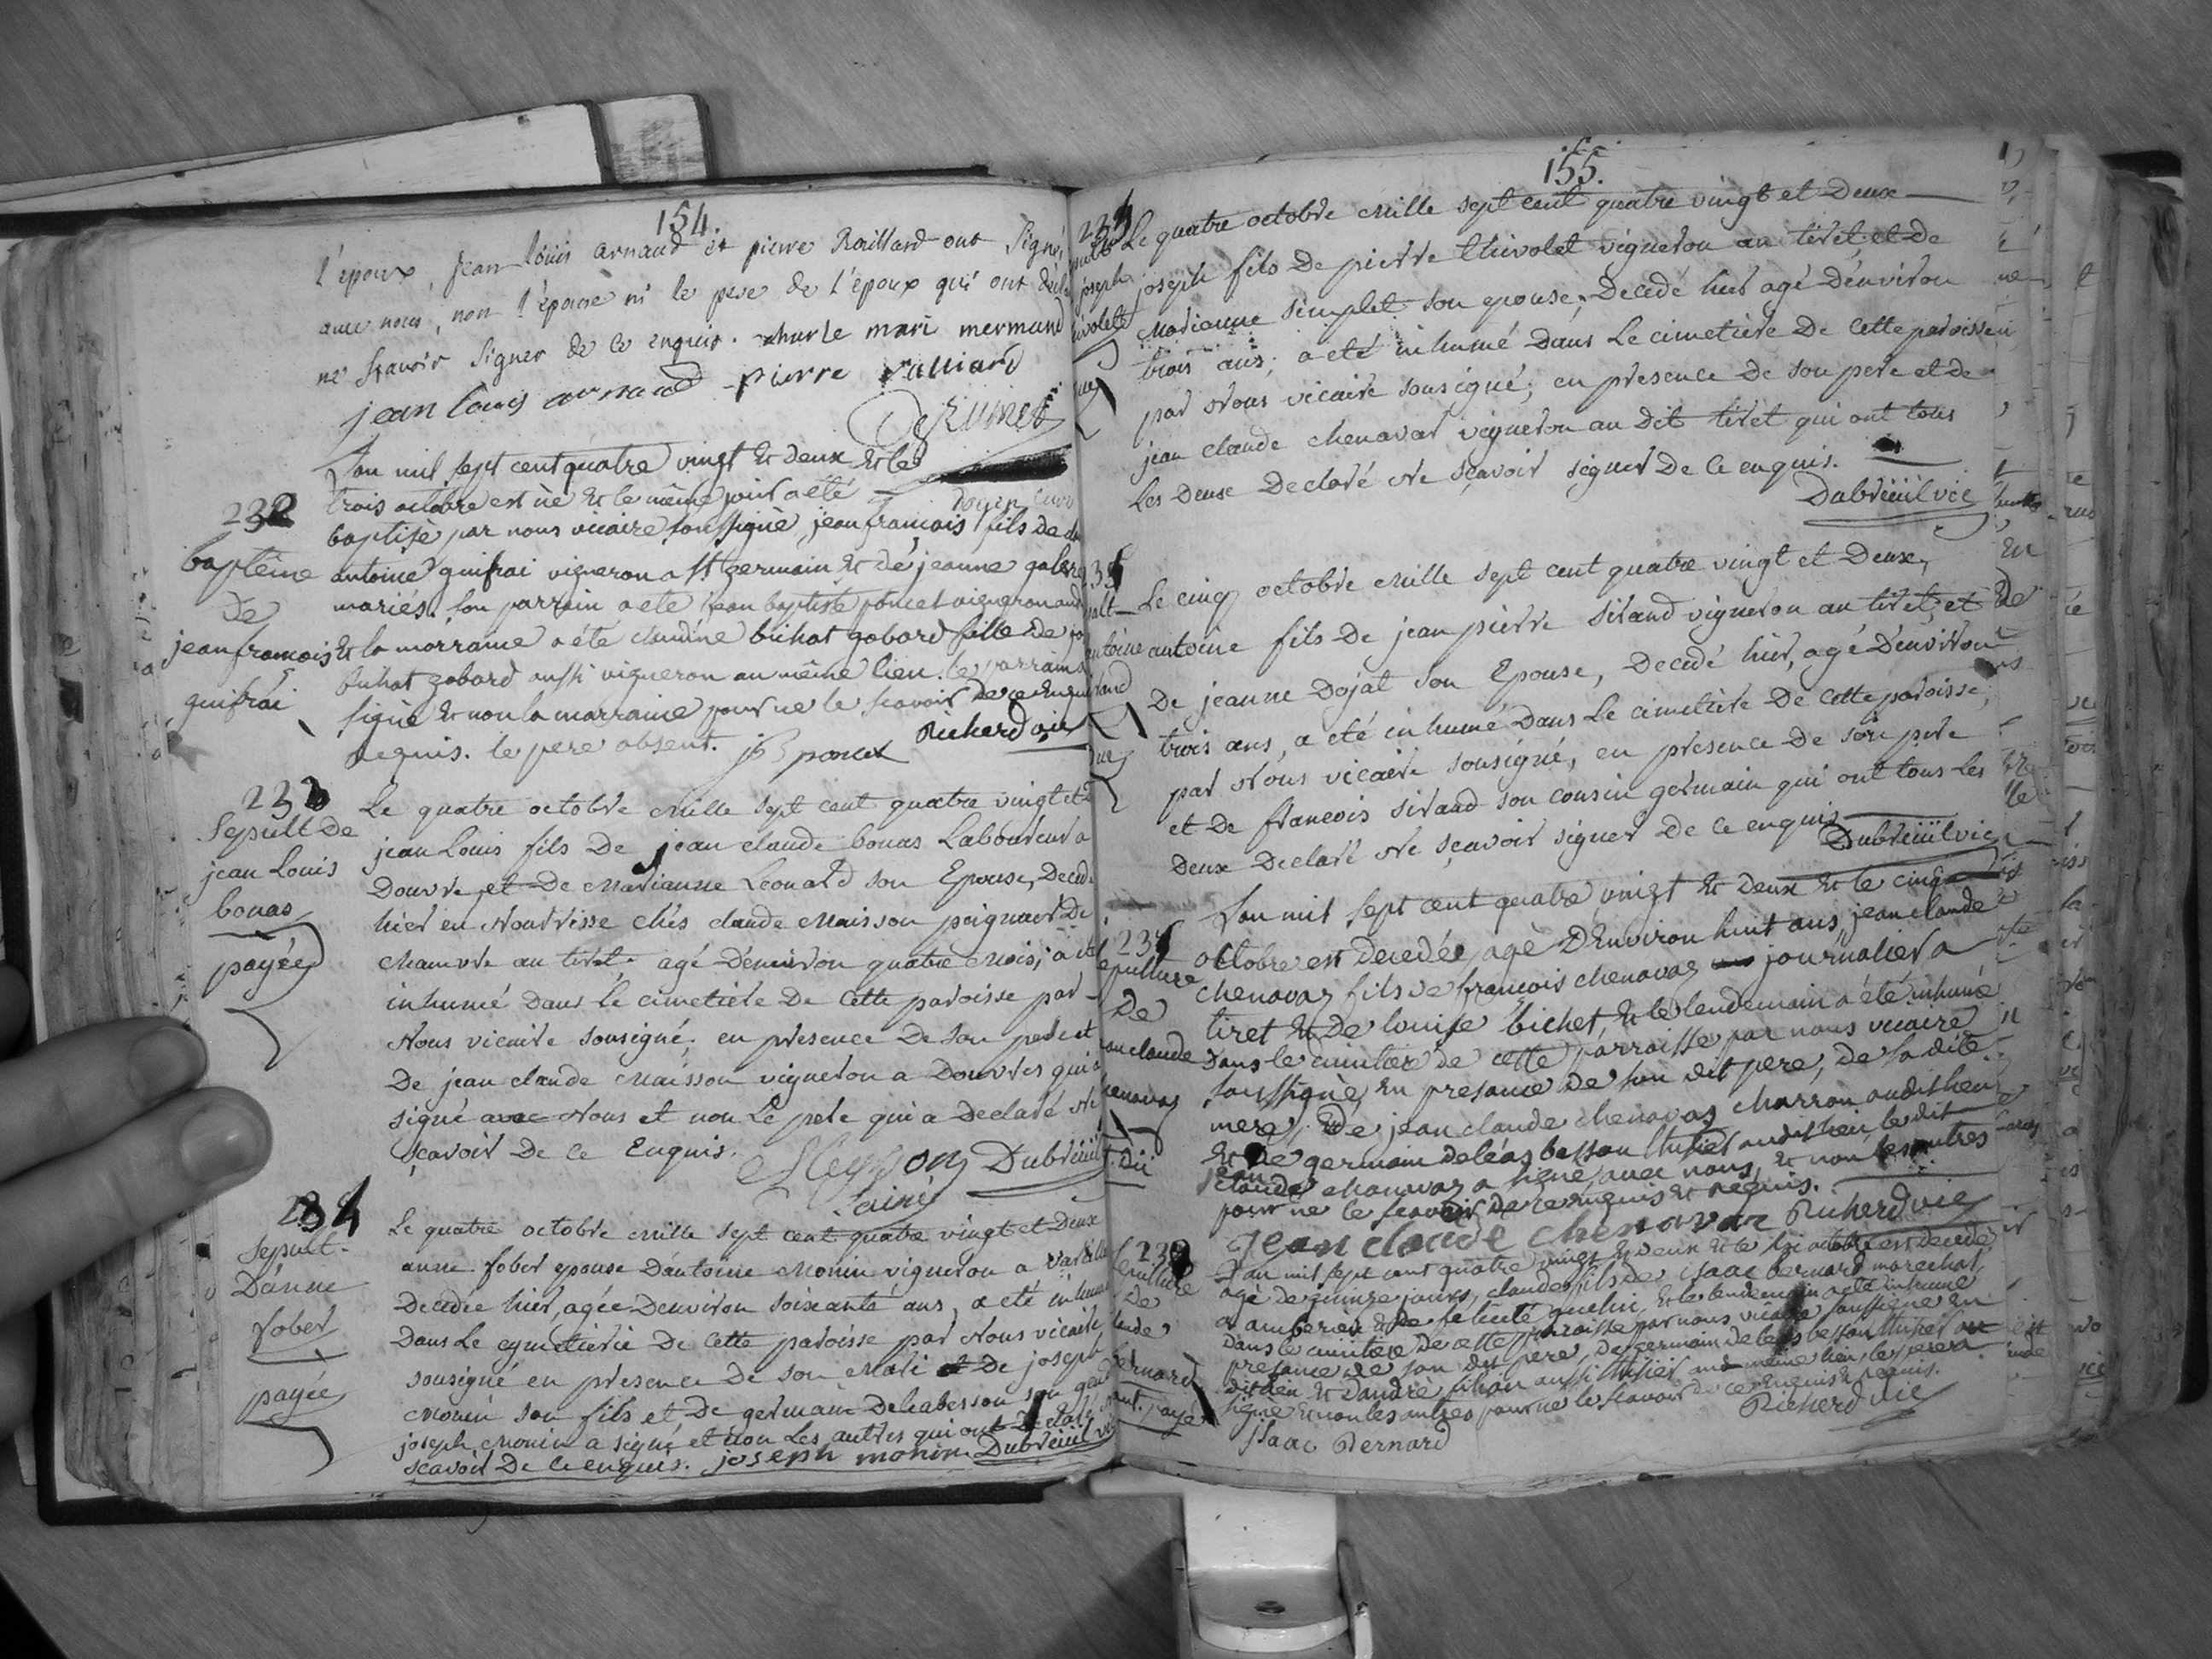 154.
l'epoux, jean louis arnaud et pierre Raillard ont signé
avec nous, non l'epouse ni le pere de l'epoux qui ont
ne sçavoir signer de ce enquis. charle mari mermand
jean louis arnaud pierre Ralliard
L'an mil sept cent quatre vingt et deux et le
232
trois octobre est né et le même jour a été
baptisé par nous vicaire soussigné, jean francois fils de
baptême
antoine guifrai vigneron a st germain et de jeanne
de
mariés. son parrain a ete jean baptiste poncet vigneron
jean francois
et la marraine a été claudine bichat gobard fille de
guifrai
bichat gobard aussi vigneron au même lieu. le parrain a
signé et non la marraine pour ne le scavoir de ce enquis
requis. le pere absent. jB poncet Richerd vic
233
Sepult de
jean Louis
bonas
payée
Le quatre octobre mille sept cent quatre vingt et
jean Louis fils De jean claude bonas Laboureur a
Douvre et De Marianne Leonard son Epouse, Decedé
hier en Nourrisse chés claude Maisson peigneur De
chanvre au tiret, agé D'environ quatre mois, a été
inhumé Dans le cimetiere De Cette paroisse par
Nous vicaire sousigné, en presence De son pere et
De jean claude Maisson vigneron a Douvres qui a
signé avec Nous et non Le pere qui a Declaré Ne
sçavoir De Ce Enquis. Dubreüil
l'ainé
234
Sepult.
D'anne
fober
payée
Le quatre octobre mille sept cent quatre vingt et Deux
anne fober epouse D'antoine Monin vigneron a Vareille
Decedée hier, agée D'environ soixante ans, a eté inhumée
Dans Le cymetiere De Cette paroisse par Nous vicaire
sousigné en presence De son Mari et De joseph
Monin son fils et De germain Deleabesson son
joseph Monin a signé et Non Les autres qui ont Declaré
sçavoir De Ce enquis. joseph monin Dubreüil vic
155.
Le quatre octobre Mille sept cent quatre vingt et Deux
joseph fils De pierre thivolet vigneron au tiret et De
Marianne simplet son epouse, Decedé hier agé D'environ
trois ans, a eté inhumé Dans Le cimetiere De Cette paroisse
par Nous vicaire sousigné, en presence De son pere et De
jean claude chenavar vigneron au Dit tiret qui ont tous
Les Deux Declaré Ne sçavoir signer De Ce enquis.
Dubreüil vic
Le cinq octobre Mille sept cent quatre vingt et Deux,
antoine fils De jean pierre sirand vigneron au tiret, et
De jeanne Dojat son Epouse, Decedé hier, agé D'environ
trois ans, a eté inhumé Dans Le cimetiere De Cette paroisse,
par Nous vicaire sousigné, en presence De son pere
et De francois sirand son cousin germain qui ont tous Les
Deux Declaré Ne sçavoir signer De Ce enquis
Dubreüil vic
L'an mil sept cent quatre vingt et deux et le cinq
octobre est decedée, agé D'Environ huit ans, jean claude
chenavaz fils de francois chenavaz journalier a
tiret et de louise bichet, et le lendemain a été inhumé
dans le cimitiere de cette parroisse par nous vicaire
soussigné, en presance de son dit pere, de sa dite
mere, De jean claude chenavaz charron audit lieu
et De germain deléaz besson thisier audit lieu, le dit
jean claude chenavaz a signé avec nous, et non les autres
pour ne le scavoir de ce enquis et requis.
jean claude chenavar Richerd vic
L'an mil sept cent quatre vingt et deux et le six octobre est decedé
agé de quinze jours, claude fils de isaac bernard marechal
a amberieu et de felicité guelin, et le lendemain a été inhumé
dans le cimitiere de cette parroisse par nous vicaire soussigné en
presance de son dit pere, de germain deleas besson thisier au
dit lieu et D'andré aussi thisier au même lieu, le pere a
signé et non les autres pour ne le scavoir de ce enquis et requis.
Isaac Bernard Richerd vic